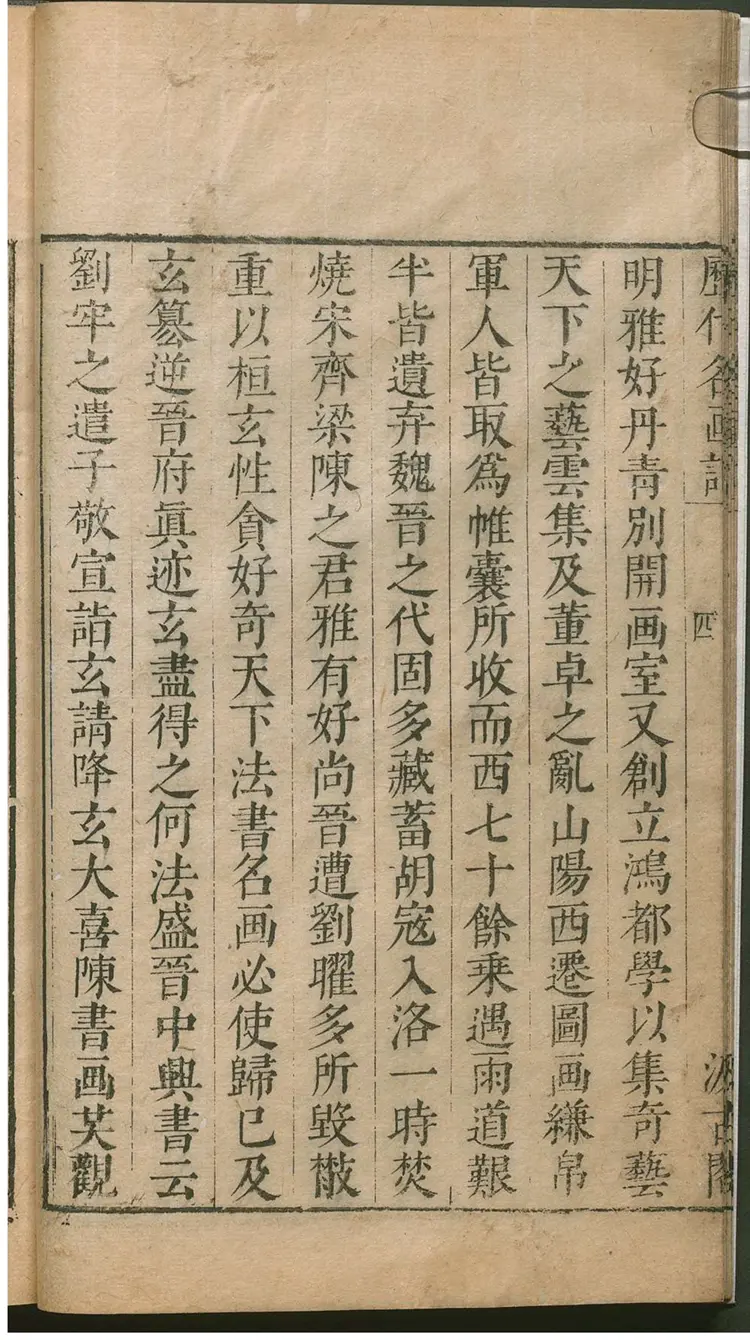 歷代名画記 四 汲古閣
明雅好丹青別開画室又創立鴻都學以集奇藝
天下之藝雲集及董卓之亂山陽西遷圖画縑帛
軍人皆取爲帷囊所收而西七十餘乗遇雨道艱
半皆遺弃魏晉之代固多藏蓄胡宼入洛一時焚
燒宋齊梁陳之君雅有好尚晉遭劉曜多所毀散
重以桓玄性貪好奇天下法書名画必使歸己及
玄簒逆晉府眞迹玄盡得之何法盛晉中興書云
劉牢之遣子敬宣詣玄請降玄大喜陳書画共觀